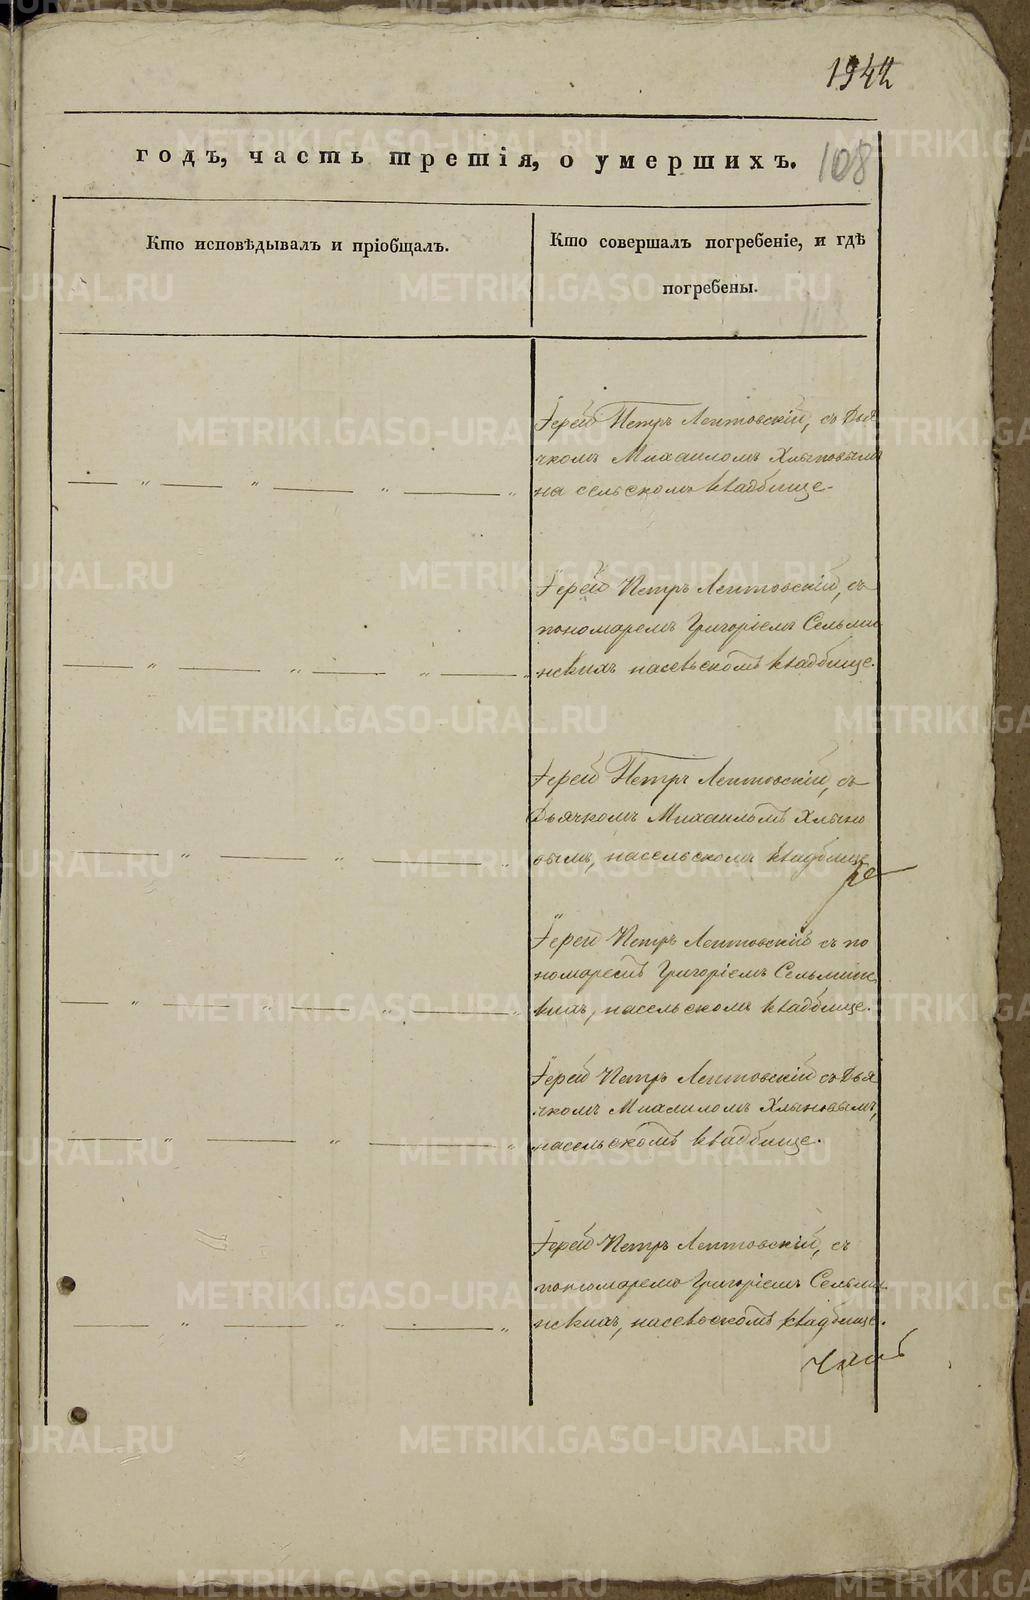 1942
годъ, часть третія, о умершихъ.
108
Кто исповѣдывалъ и пріобщалъ.
Кто совершалъ погребеніе, и гдѣ
погребены.
Іерей Петръ Лептовскій, съ Дья
чкомъ Михаиломъ Хлыновымъ
на сельскомъ кладбище.
Іерей Петръ Лептовскій, съ
пономаремъ Григоріемъ Сельмин
скихъ насельскомъ кладбище.
Іерей Петръ Лептовскій, съ
Дьячкомъ Михаиломъ Хлыно
вымъ, насельскомъ кладбище
Іерей Петръ Лептовскій съ по
номаремъ Григоріемъ Сельминс
кихъ, насельскомъ кладбище.
Іерей Петръ Лептовскій съ Дья
чкомъ Михаиломъ Хлыновымъ,
насельскомъ кладбище.
Іерей Петръ Лептовскій, съ
пономаремъ Григоріемъ Сельми
нскихъ, насельскомъ кладбище.
METRIKI.GASO-URAL.RU